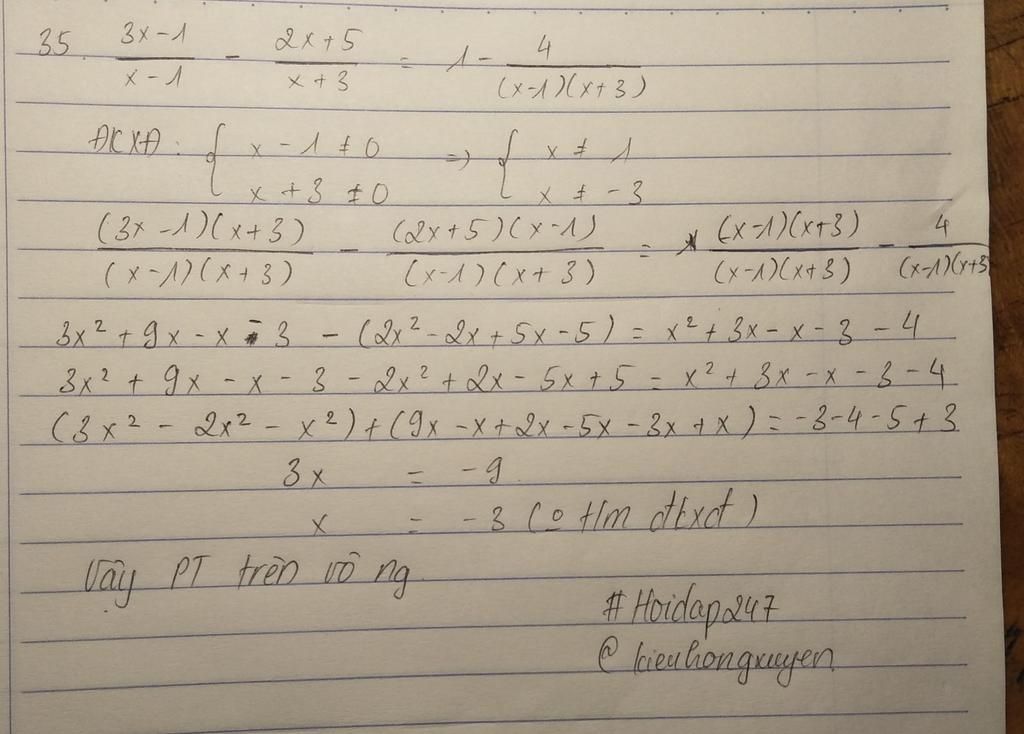 35. (3x-1)/(x-1) - (2x+5)/(x+3) = 1 - 4/((x-1)(x+3))
ĐKXĐ: { x - 1 ≠ 0 => { x ≠ 1
x + 3 ≠ 0 x ≠ -3
((3x-1)(x+3))/((x-1)(x+3)) - ((2x+5)(x-1))/((x-1)(x+3)) = ((x-1)(x+3))/((x-1)(x+3)) - 4/((x-1)(x+3)
3x² + 9x - x - 3 - (2x² - 2x + 5x - 5) = x² + 3x - x - 3 - 4
3x² + 9x - x - 3 - 2x² + 2x - 5x + 5 = x² + 3x - x - 3 - 4
(3x² - 2x² - x²) + (9x - x + 2x - 5x - 3x + x) = -3 - 4 - 5 + 3
3x = -9
x = -3 (o t/m đkxđ)
Vậy PT trên vô ng
#Hoidap247
@kieuhongxuyen